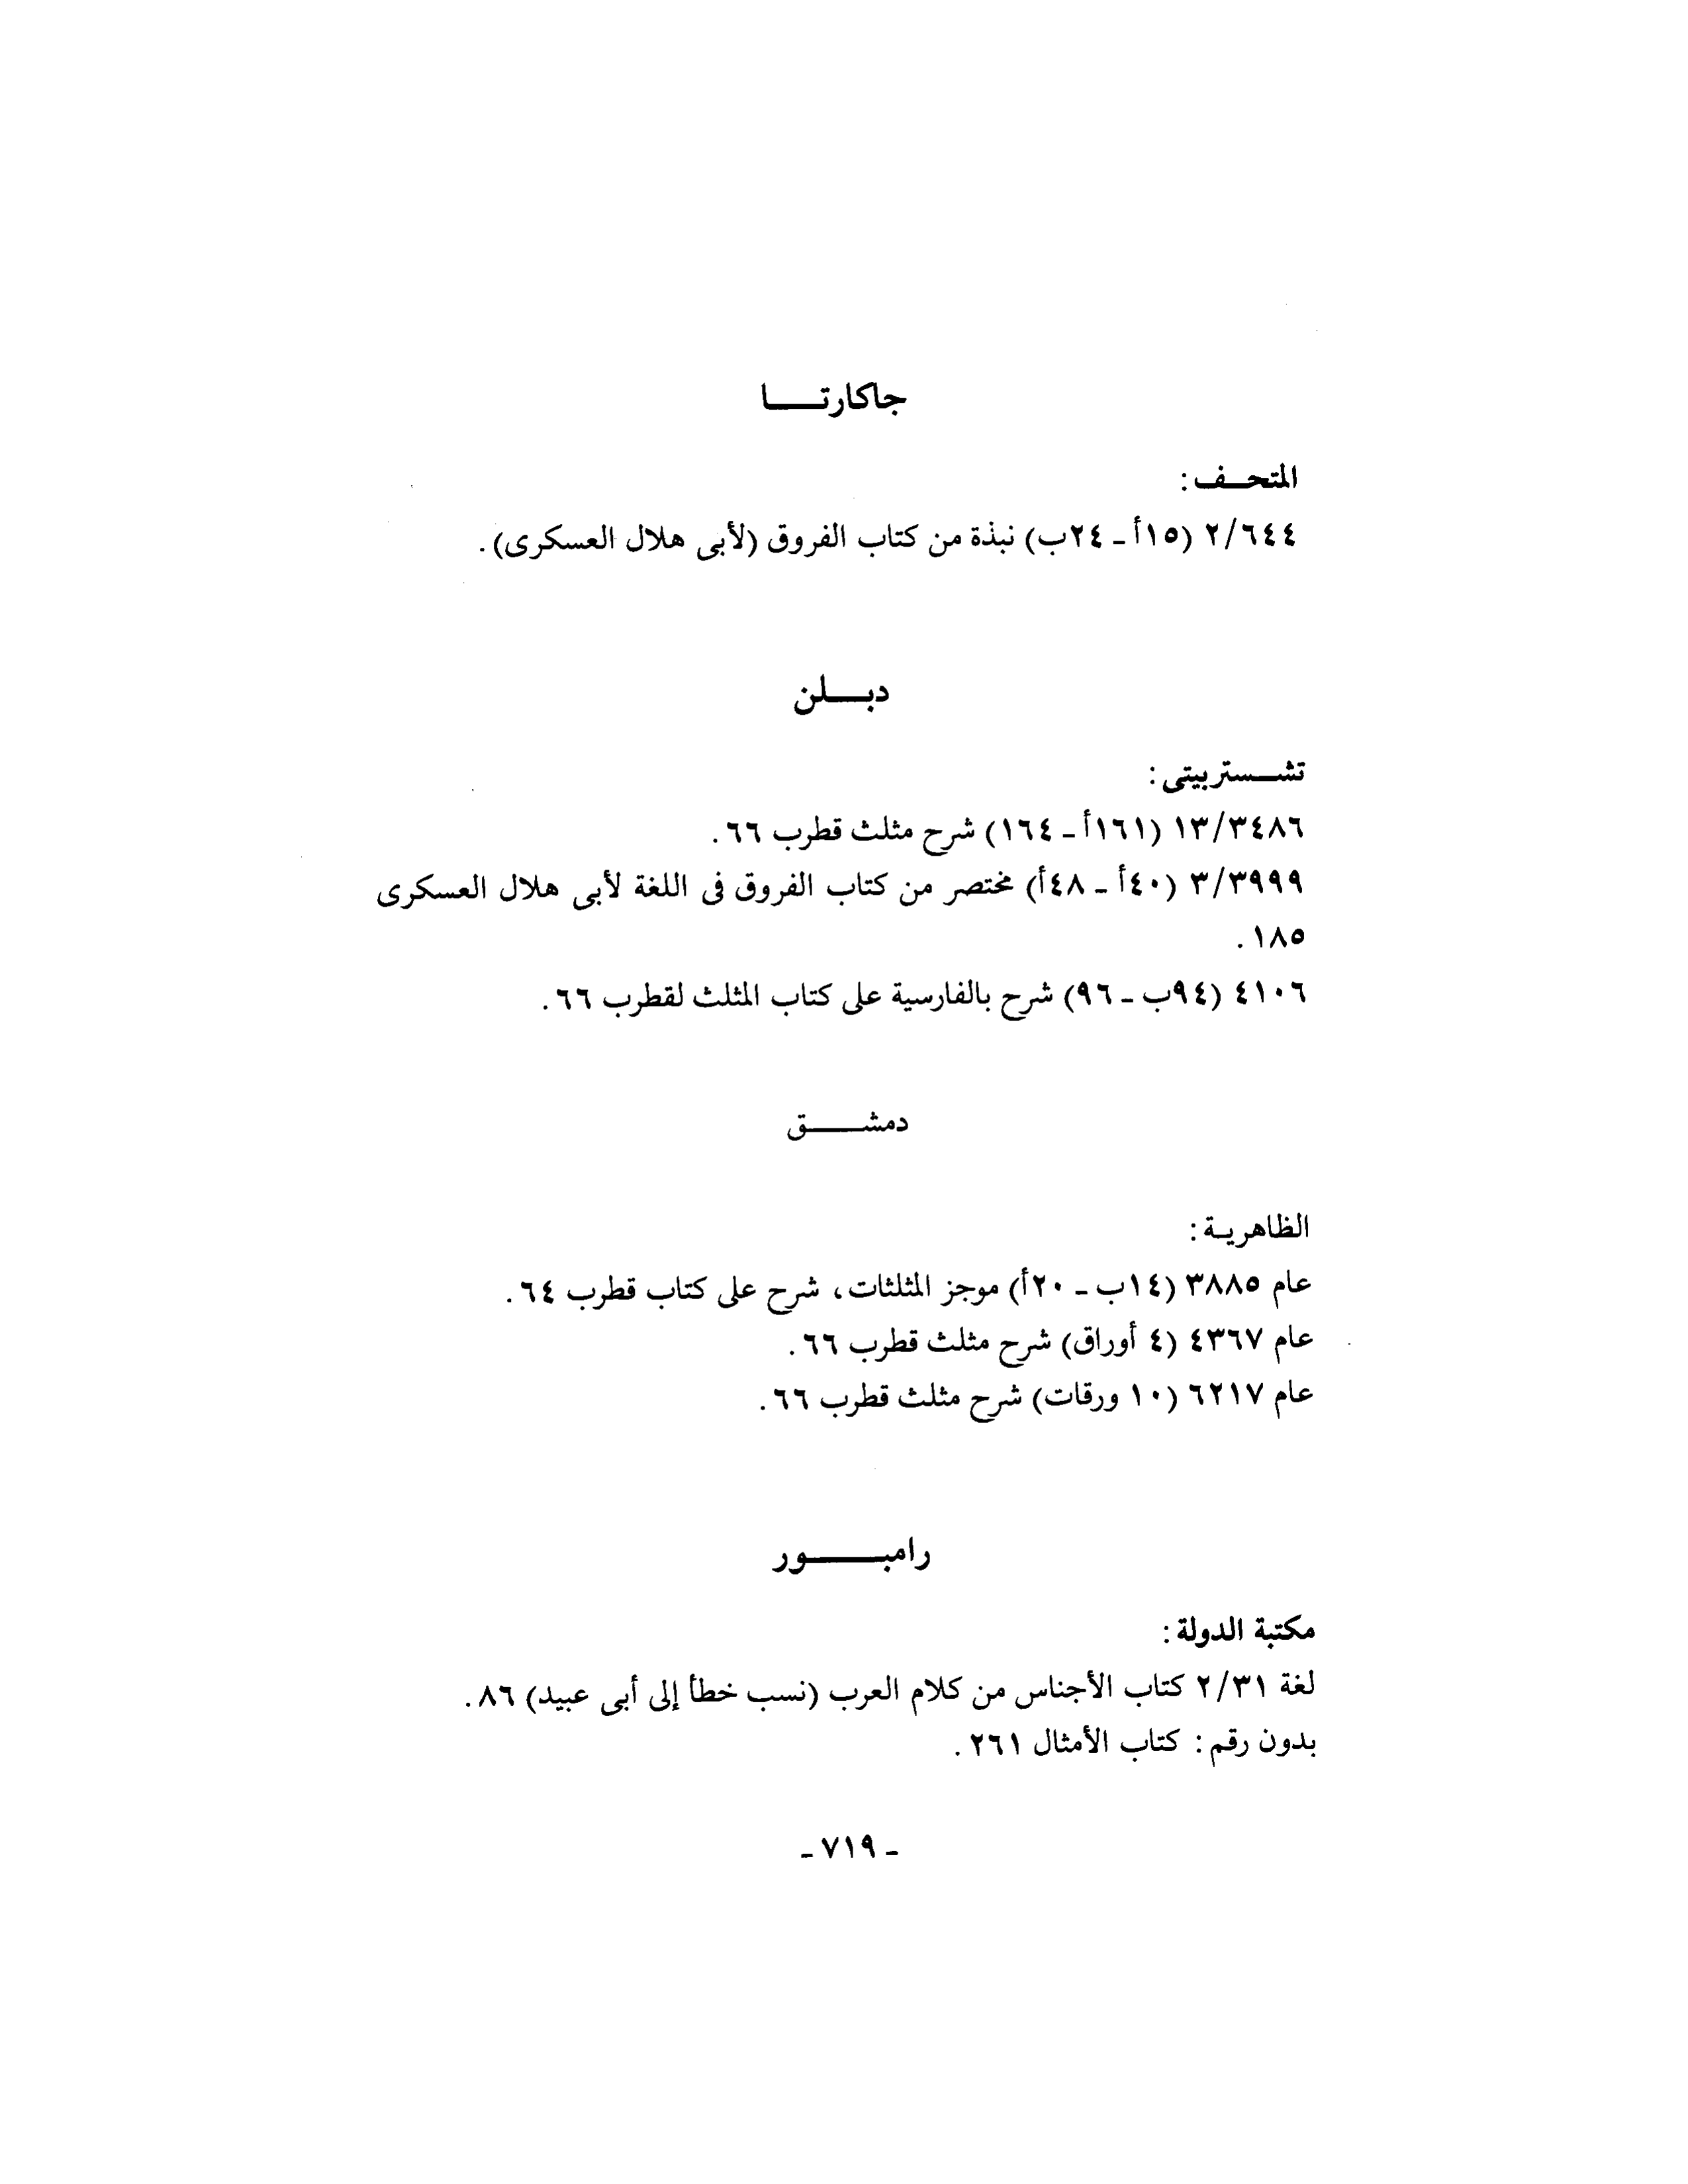 جاكارتـــــا
المتحـــف :
٢/٦٤٤ (١٥أ ـ ٢٤ب) نبذة من كتاب الفروق (لأبى هلال العسكرى) .
دبـــلن
تشـــستربيتى :
١٣/٣٤٨٦ (١٦١أ ـ ١٦٤) شرح مثلث قطرب ٦٦ .
٣/٣٩٩٩ (٤٠أ ـ ٤٨أ) مختصر من كتاب الفروق فى اللغة لأبى هلال العسكرى
١٨٥ .
٤١٠٦ (٩٤ب ـ ٩٦) شرح بالفارسية على كتاب المثلث لقطرب ٦٦ .
دمشـــــق
الظاهريـة :
عام ٣٨٨٥ (١٤ب ـ ٢٠أ) موجز المثلثات ، شرح على كتاب قطرب ٦٤ .
عام ٤٣٦٧ (٤ أوراق) شرح مثلث قطرب ٦٦ .
عام ٦٢١٧ (١٠ ورقات) شرح مثلث قطرب ٦٦ .
رامبـــــور
مكتبة الدولة :
لغة ٢/٣١ كتاب الأجناس من كلام العرب (نسب خطأ إلى أبى عبيد) ٨٦ .
بدون رقم : كتاب الأمثال ٢٦١ .
ـ ٧١٩ ـ